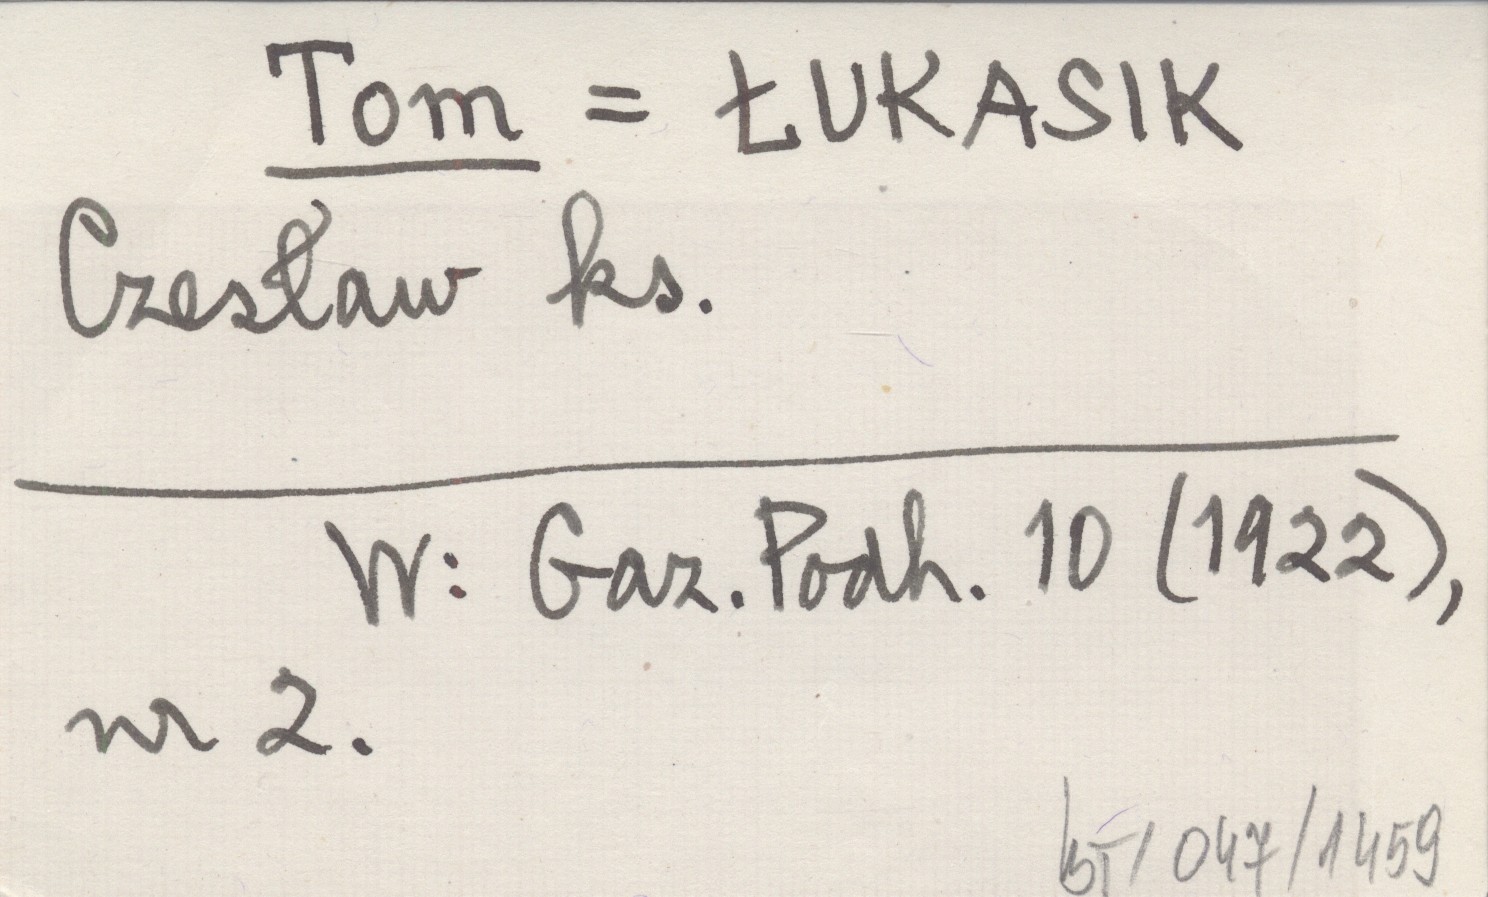 Tom = ŁUKASIK
Czesław ks.
W: Gaz. Podh. 10 (1922),
nr 2.
047/1459